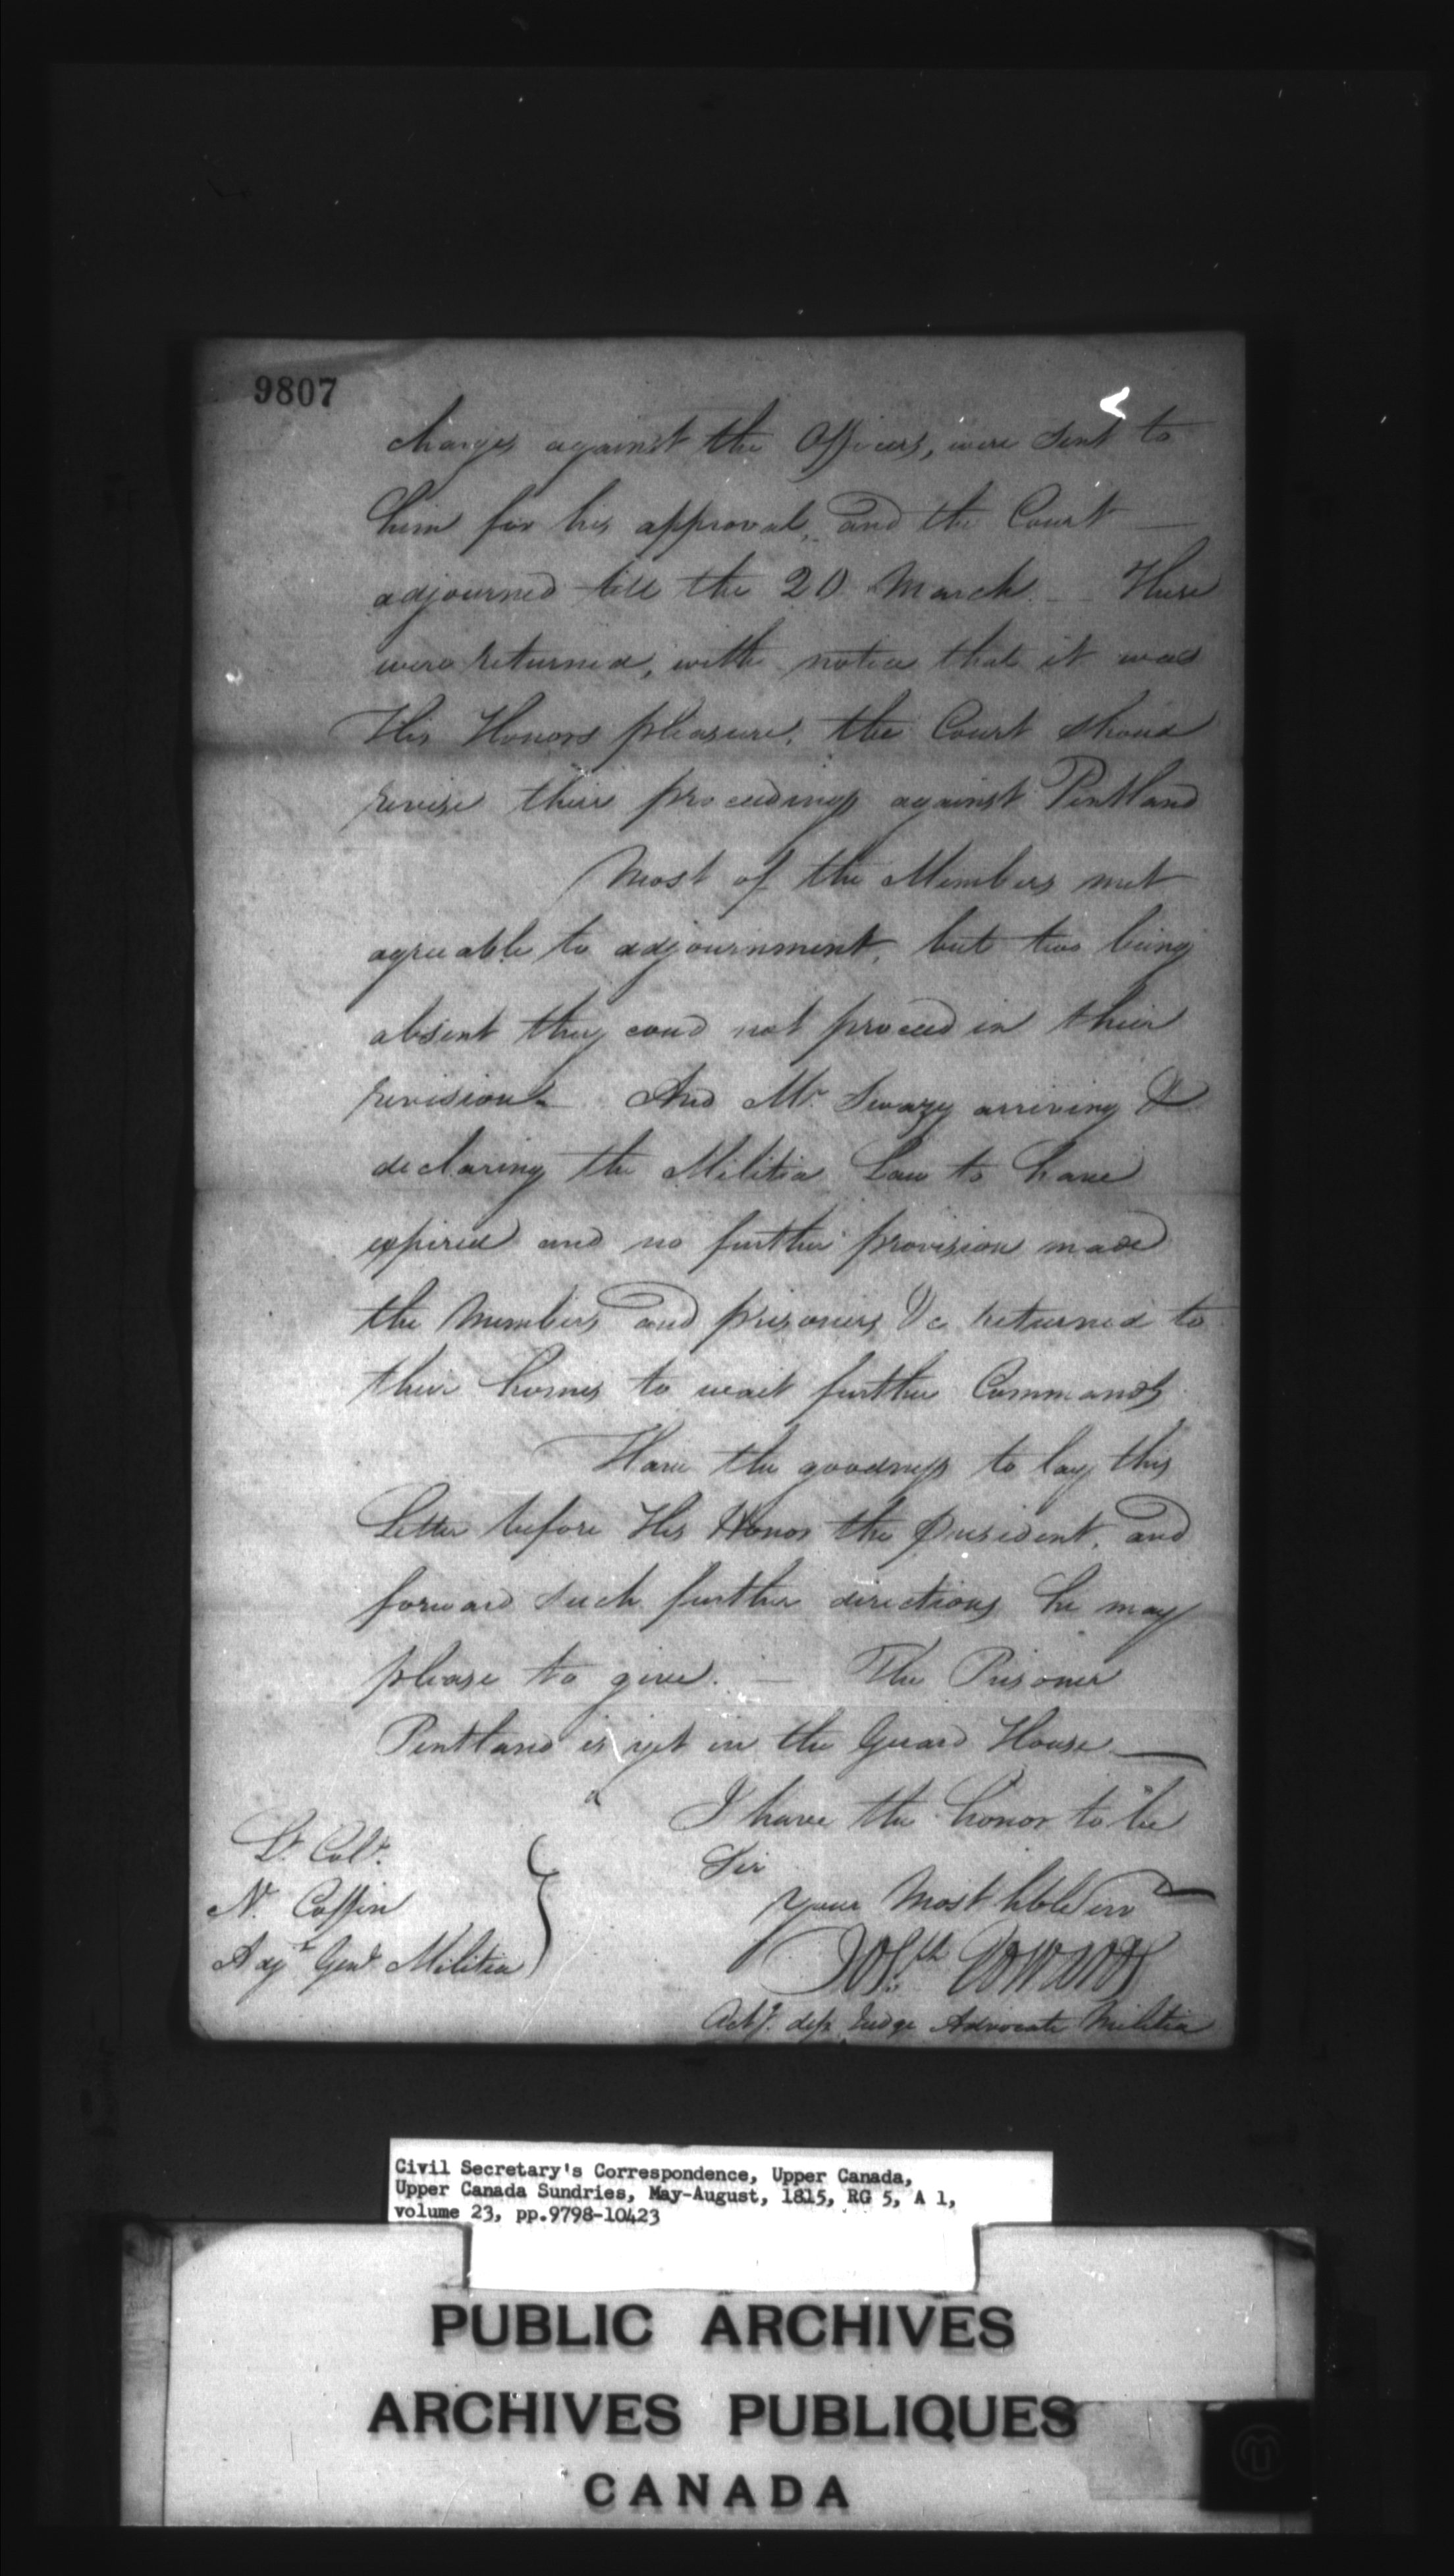 9807
charges against the Officers, were sent to
him for his approval, and the Court —
adjourned till the 20 March. — These
were returned, with notice that it was
His Honors pleasure, the Court shoud
revise their proceedings against Pentland
Most of the Members met
agreeable to adjournment, but two being
absent they coud not proceed in their
revision — And Mr. Swazy arriving &
declaring the Militia Law to have
expired and no further provision made
the Members and prisoners &c returned to
their homes to wait further Commands
Have the goodness to lay this
Letter before His Honor the president, and
forward such further directions he may
please to give. — The Prisoner
Pentland is yet in the Guard House —
I have the honor to be
Sir
your Most Hble
Lt. Col.
N. Coffin
Adjt Genl Militia
Josph Edwards
Actg. dep Judge Advocate Militia
Civil Secretary's Correspondence, Upper Canada,
Upper Canada Sundries, May-August, 1815, RG 5, A 1,
volume 23, pp.9798-10423
PUBLIC ARCHIVES
ARCHIVES PUBLIQUES
CANADA